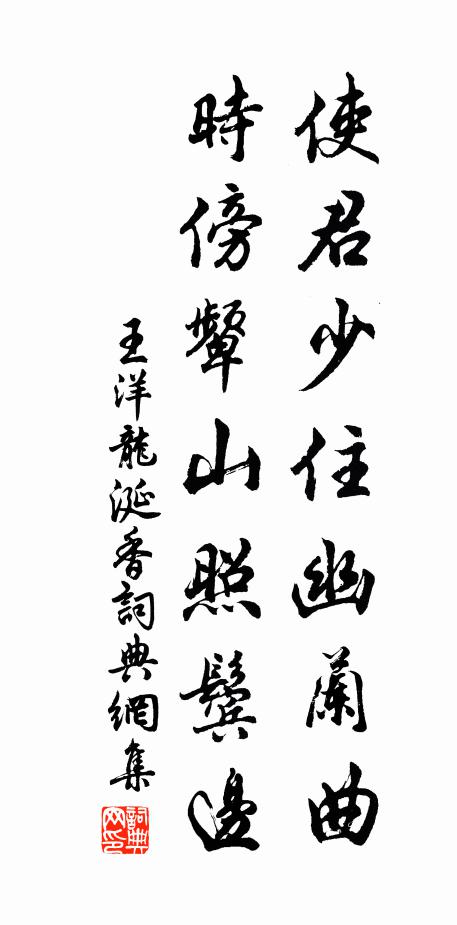 使君少住幽蘭曲
時傍顰山照鬢邊
王洋龍涎香詞典網集
詞典网印